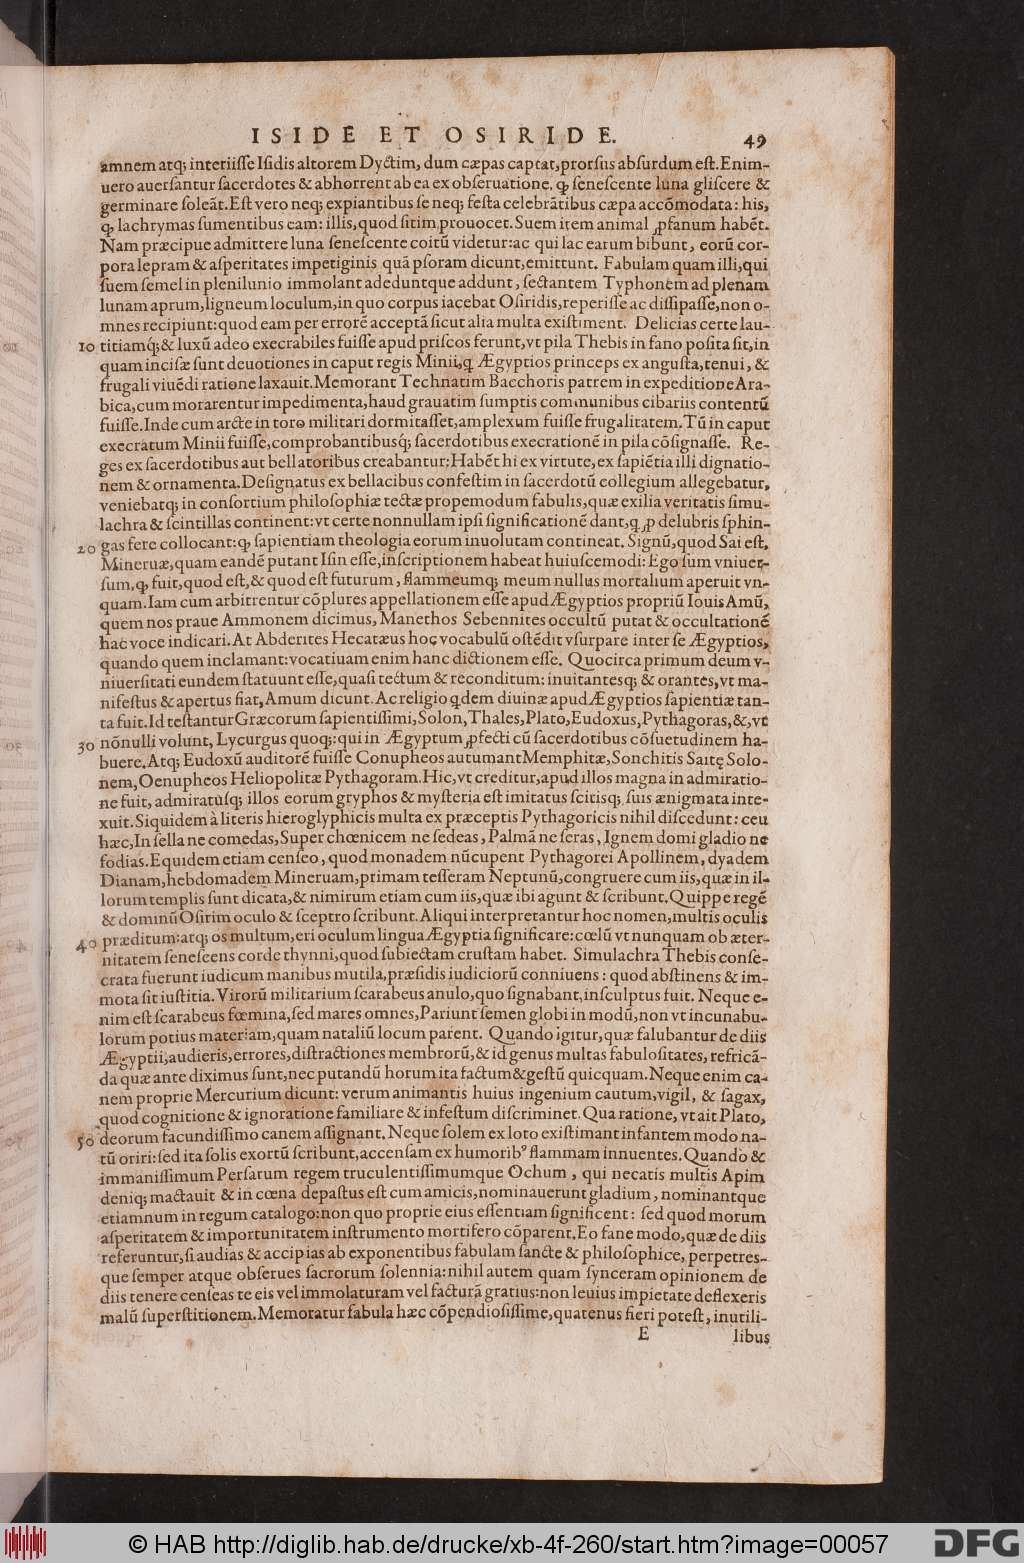 ISIDE ET OSIRIDE. 49
amnem atq; interiisse Isidis altorem Dyctim, dum cæpas captat, prorsus absurdum est. Enim-
uero auersantur sacerdotes & abhorrent ab ea ex obseruatione, ꝙ senescente luna gliscere &
germinare soleãt. Est vero neq; expiantibus se neq; festa celebrãtibus cæpa accõmodata: his,
ꝙ lachrymas sumentibus eam: illis, quod sitim prouocet. Suem item animal ꝓfanum habẽt.
Nam præcipue admittere luna senescente coitũ videtur: ac qui lac earum bibunt, eorũ cor-
pora lepram & asperitates impetiginis quã psoram dicunt, emittunt. Fabulam quam illi, qui
suem semel in plenilunio immolant adeduntque addunt, sectantem Typhonem ad plenam
lunam aprum, ligneum loculum, in quo corpus iacebat Osiridis, reperisse ac dissipasse, non o-
mnes recipiunt: quod eam per errorẽ acceptã sicut alia multa existiment. Delicias certe lau-
10 titiamq́; & luxũ adeo execrabiles fuisse apud priscos ferunt, vt pila Thebis in fano posita sit, in
quam incisæ sunt deuotiones in caput regis Minii, q Ægyptios princeps ex angusta, tenui, &
frugali viuẽdi ratione laxauit. Memorant Technatim Bacchoris patrem in expeditione Ara-
bica, cum morarentur impedimenta, haud grauatim sumptis communibus cibariis contentũ
fuisse. Inde cum arcte in toro militari dormitasset, amplexum fuisse frugalitatem. Tũ in caput
execratum Minii fuisse, comprobantibusq́; sacerdotibus execrationẽ in pila cõsignasse. Re-
ges ex sacerdotibus aut bellatoribus creabantur: Habẽt hi ex virtute, ex sapiẽtia illi dignatio-
nem & ornamenta. Designatus ex bellacibus confestim in sacerdotũ collegium allegebatur,
veniebatq; in consortium philosophiæ tectæ propemodum fabulis, quæ exilia veritatis simu-
lachra & scintillas continent: vt certe nonnullam ipsi significationẽ dant, q ꝓ delubris sphin-
20 gas fere collocant: ꝙ sapientiam theologia eorum inuolutam contineat. Signũ, quod Sai est,
Mineruæ, quam eandẽ putant Isin esse, inscriptionem habeat huiuscemodi: Ego sum vniuer-
sum, ꝙ fuit, quod est, & quod est futurum, flammeumq; meum nullus mortalium aperuit vn-
quam. Iam cum arbitrentur cõplures appellationem esse apud Ægyptios propriũ Iouis Amũ,
quem nos praue Ammonem dicimus, Manethos Sebennites occultũ putat & occultationẽ
hac voce indicari. At Abderites Hecatæus hoc vocabulũ ostẽdit vsurpare inter se Ægyptios,
quando quem inclamant: vocatiuam enim hanc dictionem esse. Quocirca primum deum v-
niuersitati eundem statuunt esse, quasi tectum & reconditum: inuitantesq; & orantes, vt ma-
nifestus & apertus fiat, Amum dicunt. Ac religio qdem diuinæ apud Ægyptios sapientiæ tan-
ta fuit. Id testantur Græcorum sapientissimi, Solon, Thales, Plato, Eudoxus, Pythagoras, &, vt
30 nõnulli volunt, Lycurgus quoq;: qui in Ægyptum ꝓfecti cũ sacerdotibus cõsuetudinem ha-
buere. Atq; Eudoxũ auditorẽ fuisse Conupheos autumant Memphitæ, Sonchitis Saitę Solo-
nem, Oenupheos Heliopolitæ Pythagoram. Hic, vt creditur, apud illos magna in admiratio-
ne fuit, admiratusq; illos eorum gryphos & mysteria est imitatus scitisq; suis ænigmata inte-
xuit. Siquidem à literis hieroglyphicis multa ex præceptis Pythagoricis nihil discedunt: ceu
hæc, In sella ne comedas, Super chœnicem ne sedeas, Palmã ne seras, Ignem domi gladio ne
fodias. Equidem etiam censeo, quod monadem nũcupent Pythagorei Apollinem, dyadem
Dianam, hebdomadem Mineruam, primam tesseram Neptunũ, congruere cum iis, quæ in il-
lorum templis sunt dicata, & nimirum etiam cum iis, quæ ibi agunt & scribunt. Quippe regẽ
& dominũ Osirim oculo & sceptro scribunt. Aliqui interpretantur hoc nomen, multis oculis
40 præditum: atq; os multum, eri oculum lingua Ægyptia significare: cœlũ vt nunquam ob æter-
nitatem senescens corde thynni, quod subiectam crustam habet. Simulachra Thebis conse-
crata fuerunt iudicum manibus mutila, præsidis iudiciorũ conniuens: quod abstinens & im-
mota sit iustitia. Virorũ militarium scarabeus anulo, quo signabant, insculptus fuit. Neque e-
nim est scarabeus fœmina, sed mares omnes, Pariunt semen globi in modũ, non vt incunabu-
lorum potius materiam, quam nataliũ locum parent. Quando igitur, quæ falubantur de diis
Ægyptii, audieris, errores, distractiones membrorũ, & id genus multas fabulositates, refricã-
da quæ ante diximus sunt, nec putandũ horum ita factum & gestũ quicquam. Neque enim ca-
nem proprie Mercurium dicunt: verum animantis huius ingenium cautum, vigil, & sagax,
quod cognitione & ignoratione familiare & infestum discriminet. Qua ratione, vt ait Plato,
50 deorum facundissimo canem assignant. Neque solem ex loto existimant infantem modo na-
tũ oriri: sed ita solis exortũ scribunt, accensam ex humoribꝰ flammam innuentes. Quando &
immanissimum Persarum regem truculentissimumque Ochum, qui necatis multis Apim
deniq; mactauit & in cœna depastus est cum amicis, nominauerunt gladium, nominantque
etiamnum in regum catalogo: non quo proprie eius essentiam significent: sed quod morum
asperitatem & importunitatem instrumento mortifero cõparent. Eo sane modo, quæ de diis
referuntur, si audias & accipias ab exponentibus fabulam sancte & philosophice, perpetres-
que semper atque obserues sacrorum solennia: nihil autem quam synceram opinionem de
diis tenere censeas te eis vel immolaturam vel facturã gratius: non leuius impietate deflexeris
malũ superstitionem. Memoratur fabula hæc cõpendiosissime, quatenus fieri potest, inutili-
E libus
© HAB http://diglib.hab.de/drucke/xb-4f-260/start.htm?image=00057 DFG